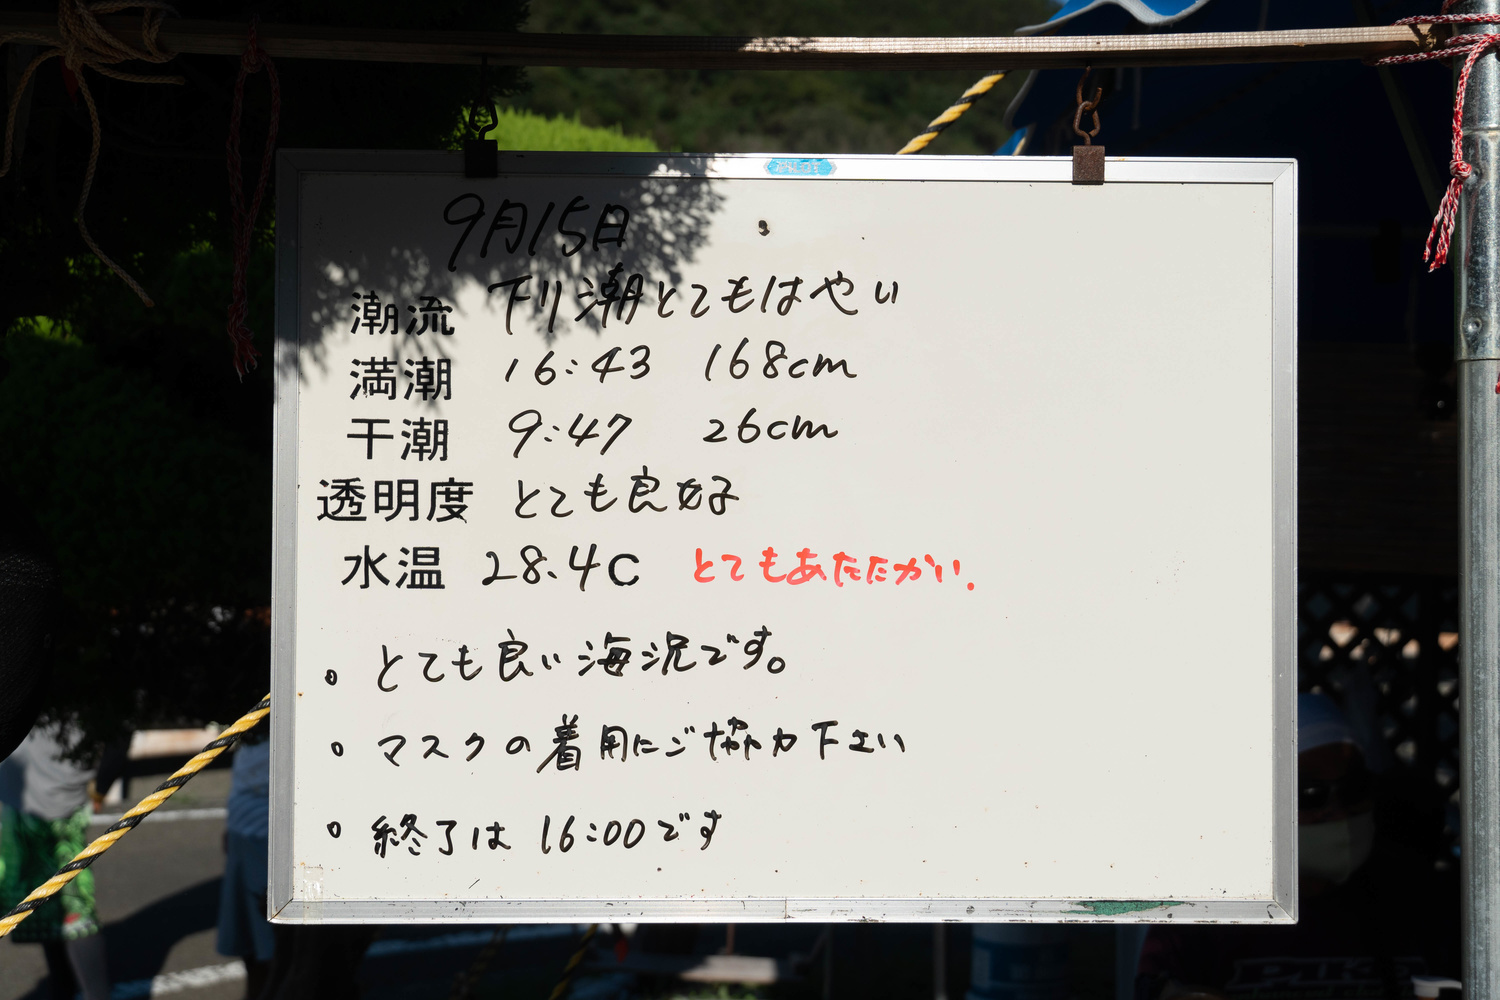 9月15日
潮流 下り潮とてもはやい
満潮 16:43 168cm
干潮 9:47 26cm
透明度 とても良好
水温 28.4C とてもあたたかい.
。とても良い海況です。
。マスクの着用にご協力下さい
。終了は 16:00です